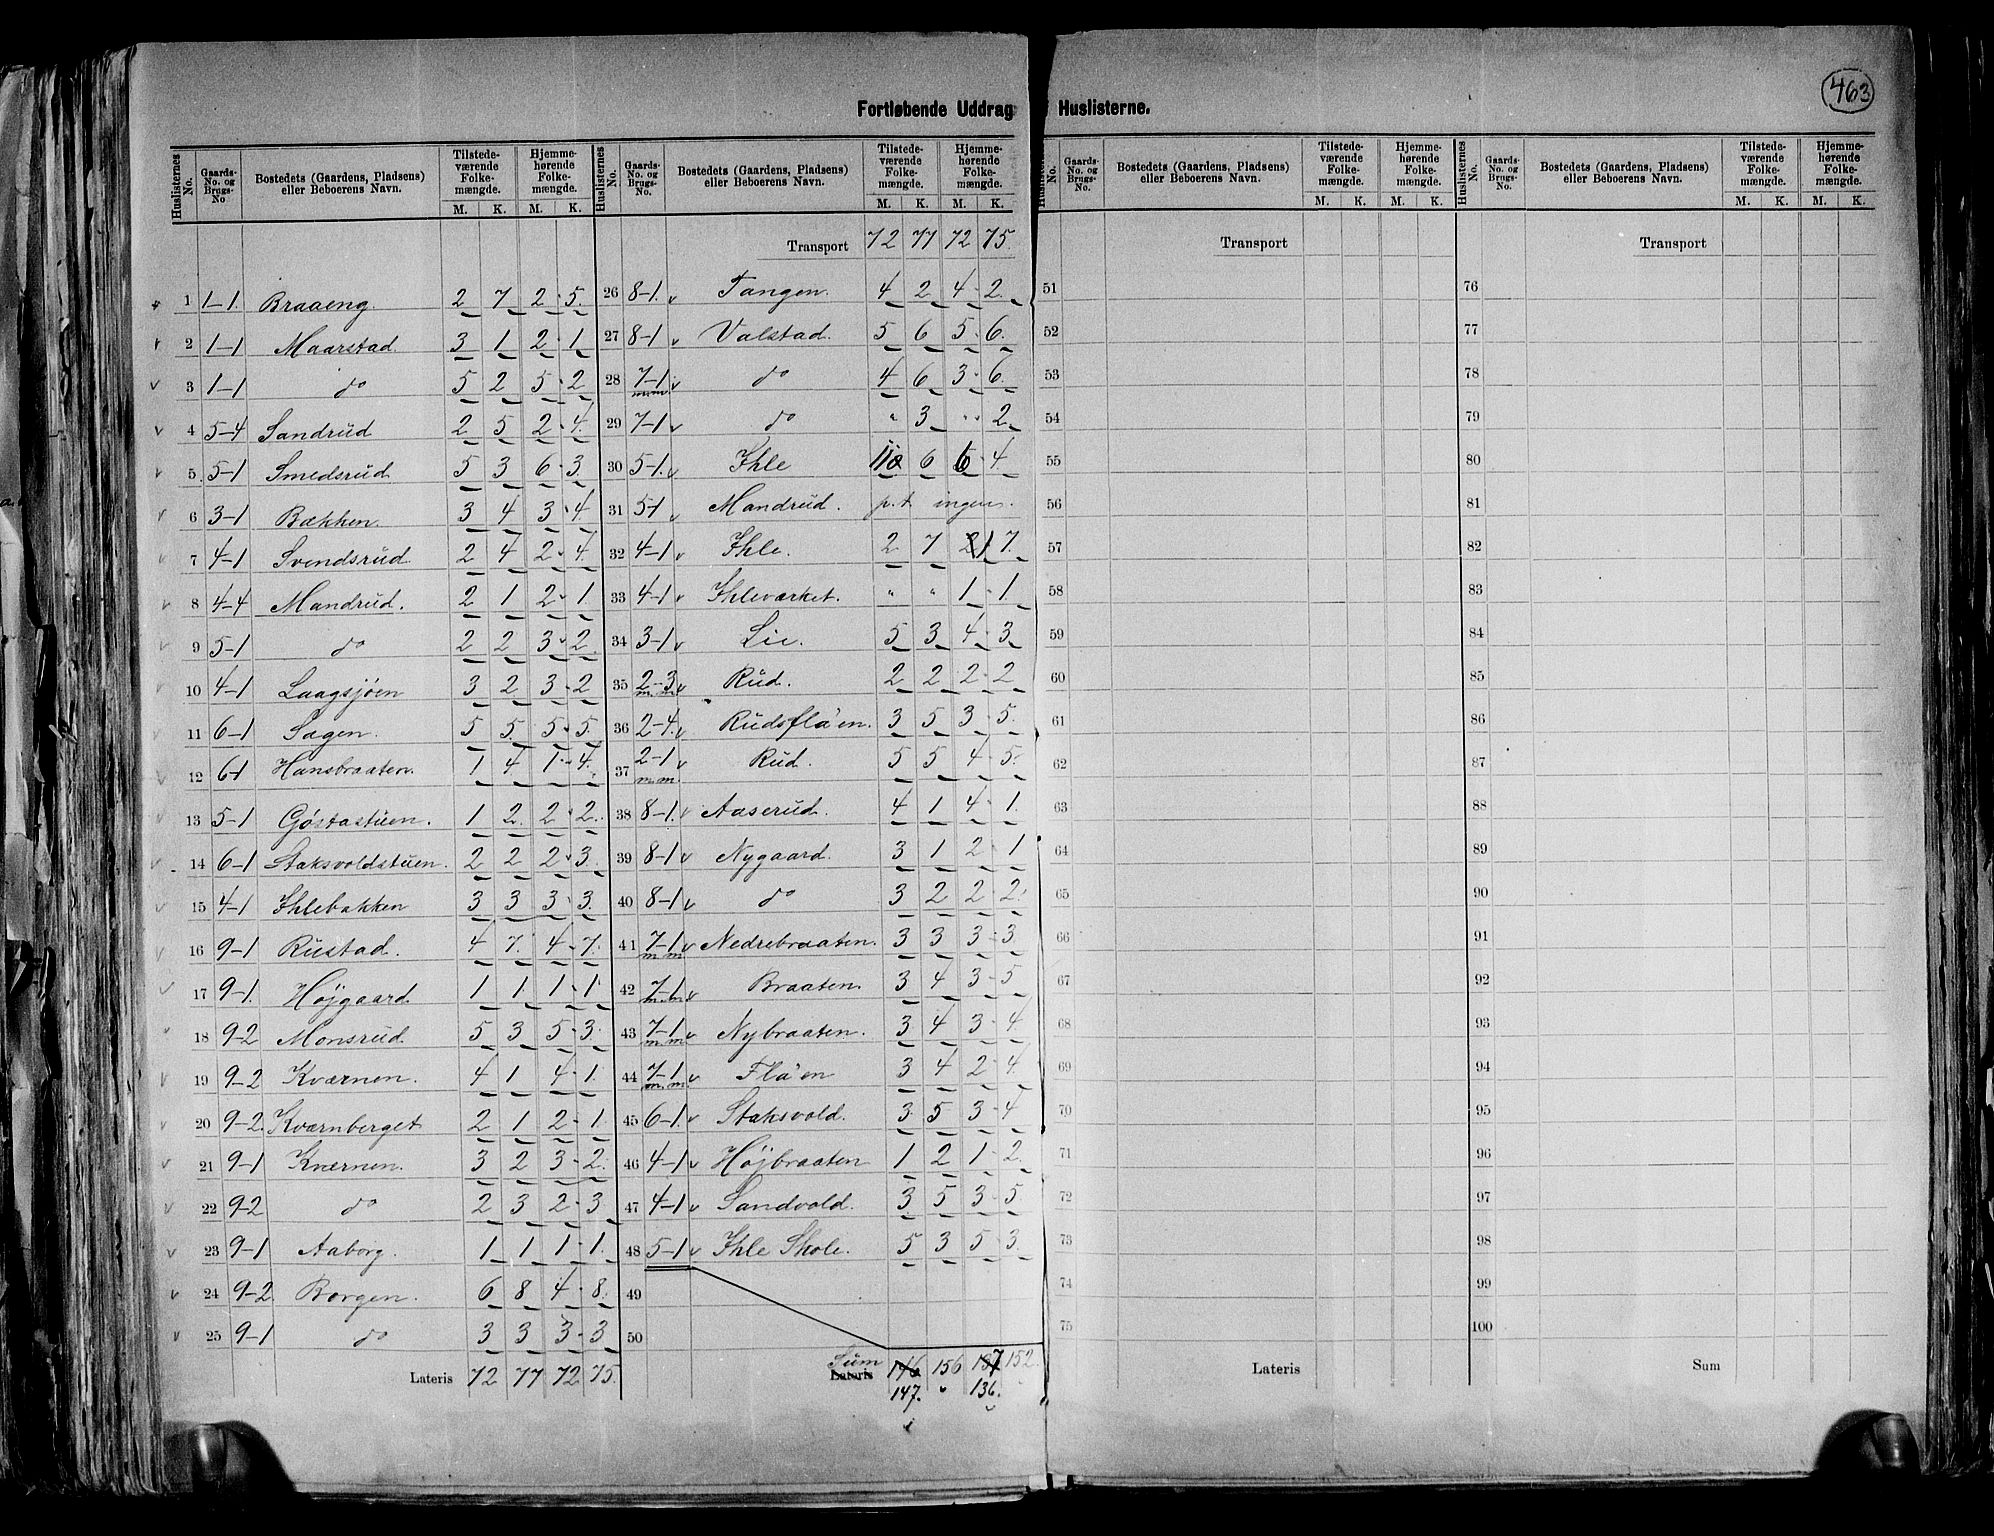 463
Fortløbende Uddrag Huslisterne.
Huslisternes No. Gaards-No. og Brugs-No Bostedets (Gaardens, Pladsens) eller Beboerens Navn. Tilstedeværende Folkemængde. M. K. Hjemmehørende Folkemængde. M. K.
1 1-1. Braaeng 2 7 2 5.
2 1-1 Maarstad. 3 1 2 1
3 1-1 do 5 2 5 2
4 5-4 Sandrud 2 5 2 4.
5 5-1 Smedsrud 5 3 6 3.
6 3-1 Bækken. 3 4 3 4
7 4-1 Svendsrud 2 4 2 4.
8 4-4 Mandrud. 2 1 2 1.
9 5-1 do 2 2 3 2.
10 4-1 Laagsjøen 3 2 3 2
11 6-1 Sagen. 5 5. 5 5.
12 6-1 Hansbraaten. 1 4 1 4.
13 5-1 Gøstastuen. 1 2. 2 2.
14 6-1 Staksvoldstuen. 2 2 2 3.
15 4-1 Ihlebakken 3 3 3 3.
16 9-1 Rustad. 4 7. 4 7.
17 9-1. Højgaard 1 1. 1 1.
18 9-2 Monsrud. 5 3 5 3.
19 9-2 Kværnen. 4 1 4 1.
20 9-2. Kværnberget 2 1 2 1.
21 9-1 Kværnen. 3 2 3 2.
22 9-2 do 2 3 2 3.
23 9-1 Aaborg. 1 1 1 1.
24 9-2. Borgen. 6 8 4 8.
25 9-1 do 3 3 3 3
Lateris 72 77 72 75.
Huslisternes No. Gaards-No. og Brugs-No Bostedets (Gaardens, Pladsens) eller Beboerens Navn. Tilstedeværende Folkemængde. M. K. Hjemmehørende Folkemængde. M. K.
Transport 72 77 72 75.
26 8-1. Tangen. 4 2 4 2.
27 8-1 Valstad. 5 6 5 6.
28 7-1 m.m. do 4 6 3 6.
29 7-1 do " 3 " 2.
30 5-1. Ihle 6 4.
31 5-1 Mandrud. p.t. ingen.
32 4-1 Ihle. 2 7 1 7.
33 4-1 Ihleværket. " " 1 1
34 3-1 Lie. 5 3 4 3
35 2-3 m.m. Rud. 2 2 2 2
36 2-4. Rudsflå'en. 3 5 3 5.
37 2-1 m.m. Rud. 5 5 4 5.
38 8-1. Aaserud. 4 1 4 1.
39 8-1 Nygaard. 3 1 2 1
40 8-1 do 3 2 2 2.
41 7-1 m.m. Nedrebraaten. 3 3 3 3
42 7-1 m.m. Braaten. 3 4 3 5
43 7-1 m.m Nybraaten. 3 4 3 4.
44 7-1 m.m Flå'en 3 4 2 4.
45 6-1. Staksvold. 3 5 3 4
46 4-1 Højbraaten 1 2 1 2.
47 4-1 Sandvold. 3 5 3 5
48 5-1 Ihle Skole. 5 3 5 3.
49
50
Sum Lateris 146 156 137 152.
147. 136.
No. Gaards-No. og Brugs-No. Bostedets (Gaardens, Pladsens) eller Beboerens Navn. Tilstedeværende Folkemængde. M. K. Hjemmehørende Folkemængde. M. K.
Transport
51
52
53
54
55
56
57
58
59
60
61
62
63
64
65
66
67
68
69
70
71
72
73
74
75
Lateris
Huslisternes No. Gaards-No. og Brugs-No. Bostedets (Gaardens, Pladsens) eller Beboerens Navn. Tilstedeværende Folkemængde. M. K. Hjemmehørende Folkemængde. M. K.
Transport
76
77
78
79
80
81
82
83
84
85
86
87
88
89
90
91
92
93
94
95
96
97
98
99
100
Sum